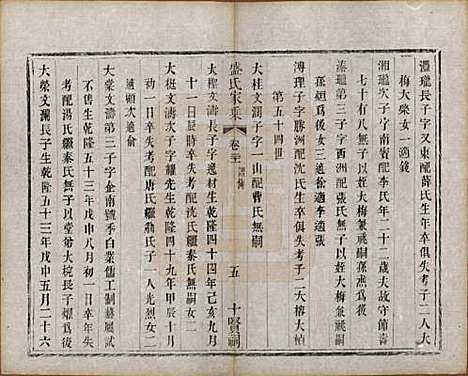 澧瓏長子字又東配薛氏生年卒俱失考子二人大
梅大榮女一適錢
湘瓏次子字南賓配李氏年二十二歲夫故守節壽
七十有八無子以姪大梅兼祧嗣孫燕爲後
溱瓏三子字西洲配張氏無子以姪大梅兼祧嗣
孫烜爲後女三適徐適李適張
溥理子字勝洲配沈氏生卒俱失考子二大榕大楨
第五十四世
大桂文淵子字一山配曹氏無嗣
盛氏家乘
卷三
五
十賢祠
大檉文濤長子字逸材生乾隆四十四年己亥九月
十一日時卒失考配沈氏繼秦氏無嗣
大梃文濤次子字耀先生乾隆四十九年甲辰十月
初一日卒失考配唐氏繼勳氏子一人光烈女二
適顧次適俞
大棠文濤第三子字企南號季白業儒工制藝屢試
不售生乾隆五十三年戊申八月初三日卒失
考配湯氏繼秦氏無子以堂弟大椀長子燿爲後
大榮文瀾長子生乾隆五十三年戊申五月二十六